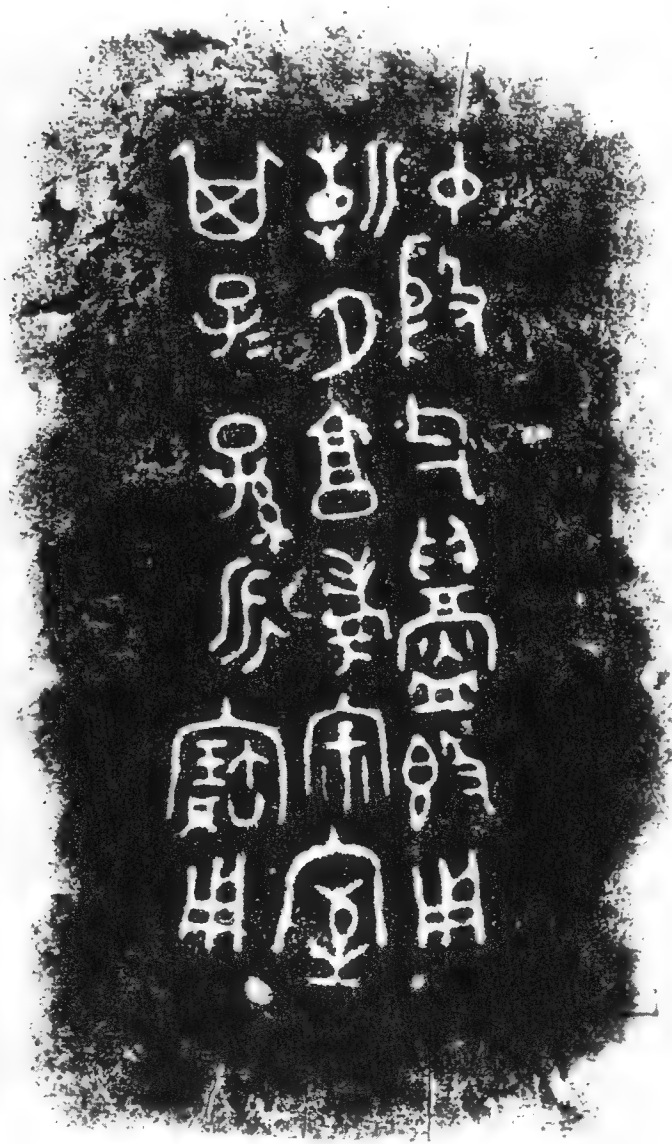 中殷父鑄𣪘用
朝夕享孝宗室
其子=孫永寶用